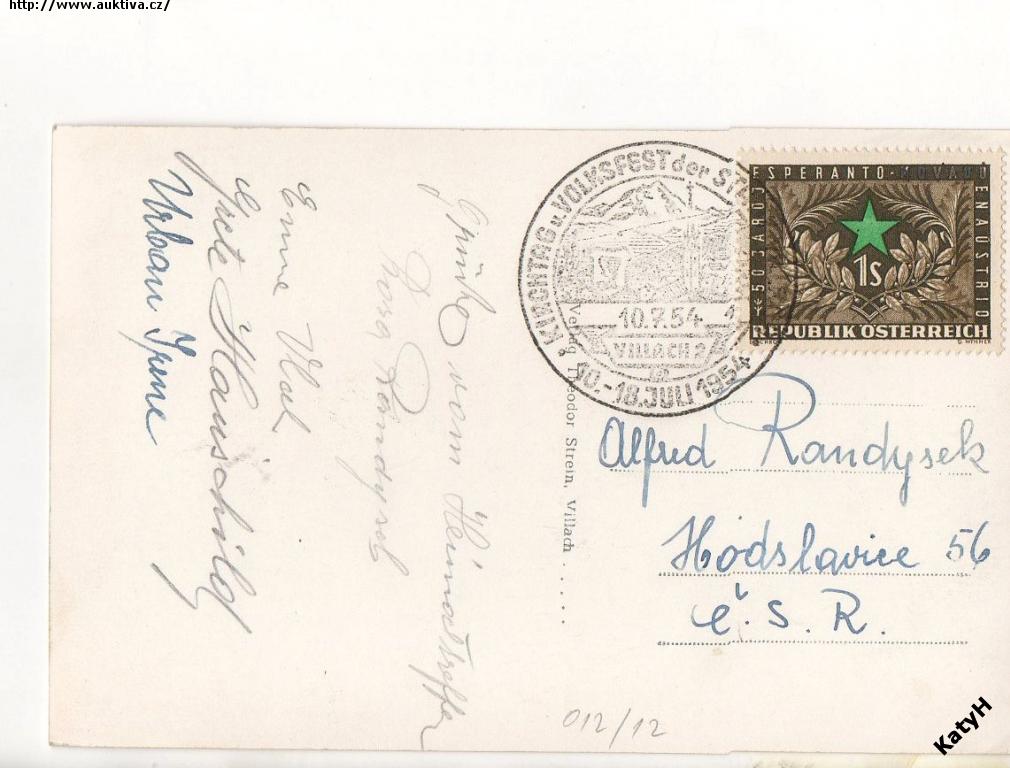 http://www.auktiva.cz/
Grüße vom Heimattreffen
Rosa Randysek
Emme
Grete Hauschild
Urban Irene
Verlag Theodor Strein, Villach . . . . .
KIRCHTAG u. VOLKSFEST der ST
10.7.54
VILLACH 2
10.-18. JULI 1954
50 JAROJ ESPERANTO-MOVADO EN AUSTRIO
1S
REPUBLIK ÖSTERREICH
Alfred Randysek
Hodslavice 56
Č. S. R.
012/12
KatyH